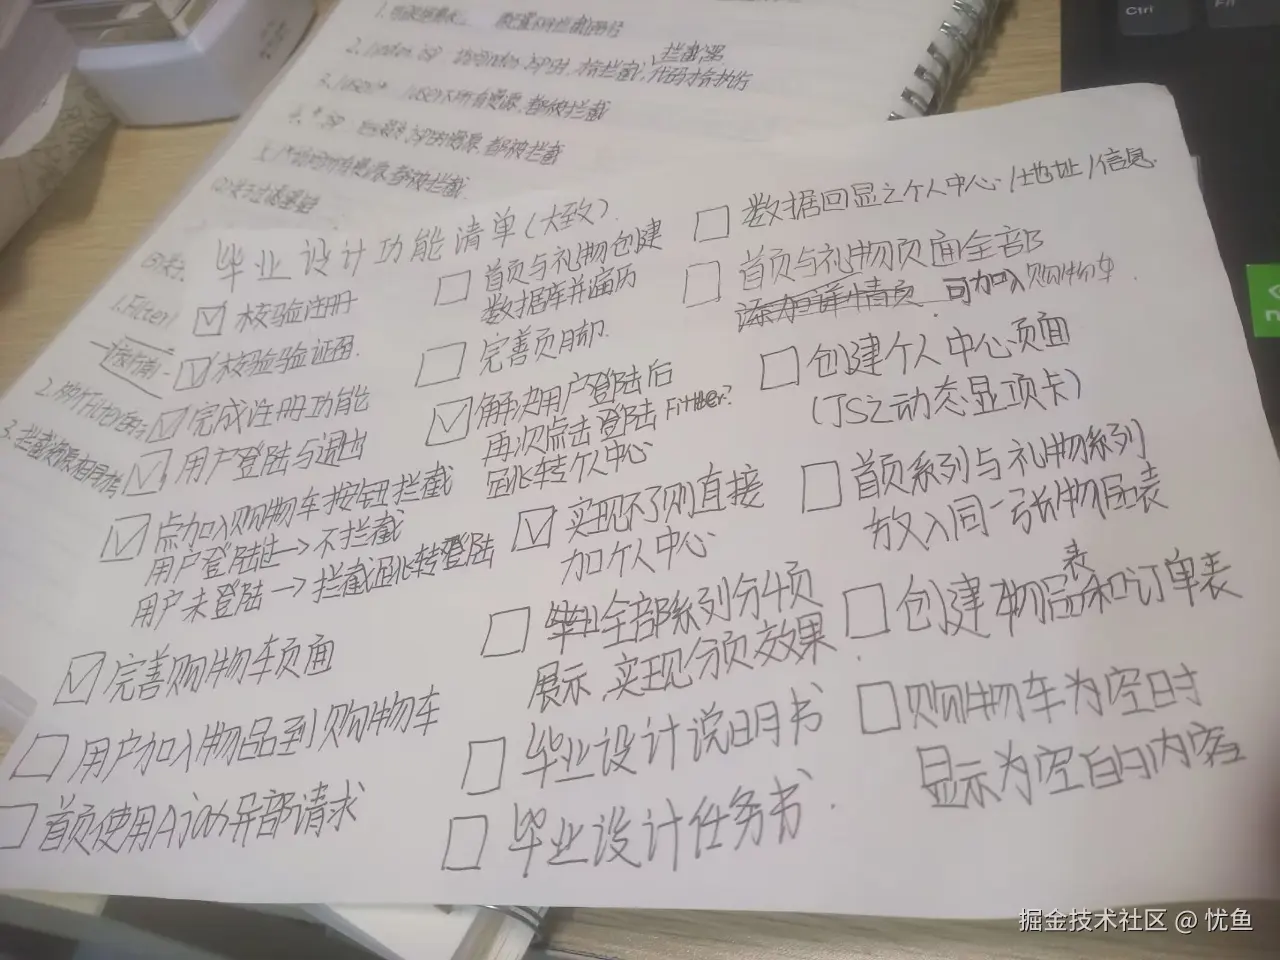 2. /index.jsp 访问index.jsp时,才会拦截,代码才会执行
拦截器
3. /user/* /user下所有资源,都被拦截
4. *.jsp 后缀为jsp的资源,都被拦截
5. /* 访问所有资源,都被拦截
毕业设计功能清单(大致).
1. Filter
☑ 核验注册
☑ 核验验证码.
☑ 完成注册功能
☑ 用户登陆与退出
☑ 点加入购物车按钮拦截
用户登陆过→不拦截
用户未登陆→拦截跳转登陆
☑ 完善购物车页面
☐ 用户加入物品到购物车
☐ 首页使用Ajax异部请求
☐ 首页与礼物创建
数据库并遍历
☐ 完善页脚.
☑ 解决用户登陆后
再次点击登陆 Filter?
跳转个人中心
☑ 实现不了则直接
加个人中心
☐ 全部系列分4页
展示,实现分页效果.
☐ 毕业设计说明书
☐ 毕业设计任务书.
☐ 数据回显之个人中心./地址/信息.
☐ 首页与礼物页面全部
添加详情页. 可加入购物车.
☐ 创建个人中心页面
(JS之动态显项卡)
☐ 首页系列与礼物系列
放入同一张物品表
☐ 创建物品表和订单表
☐ 购物车为空时
显示为空白的内容
掘金技术社区 @ 忧鱼